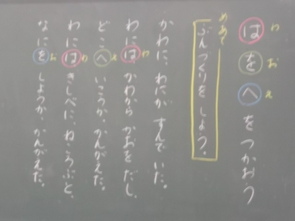 はをへをつかおう
わ
お
え
めあて
ぶんづくりをしよう。
かわに、わにが すんで いた。
わには かわから かおを だし、
わ
どこへ いこうか、かんがえた。
え
わには きしべに、ねころぶと、
わ
なにを しようか、かんがえた。
お